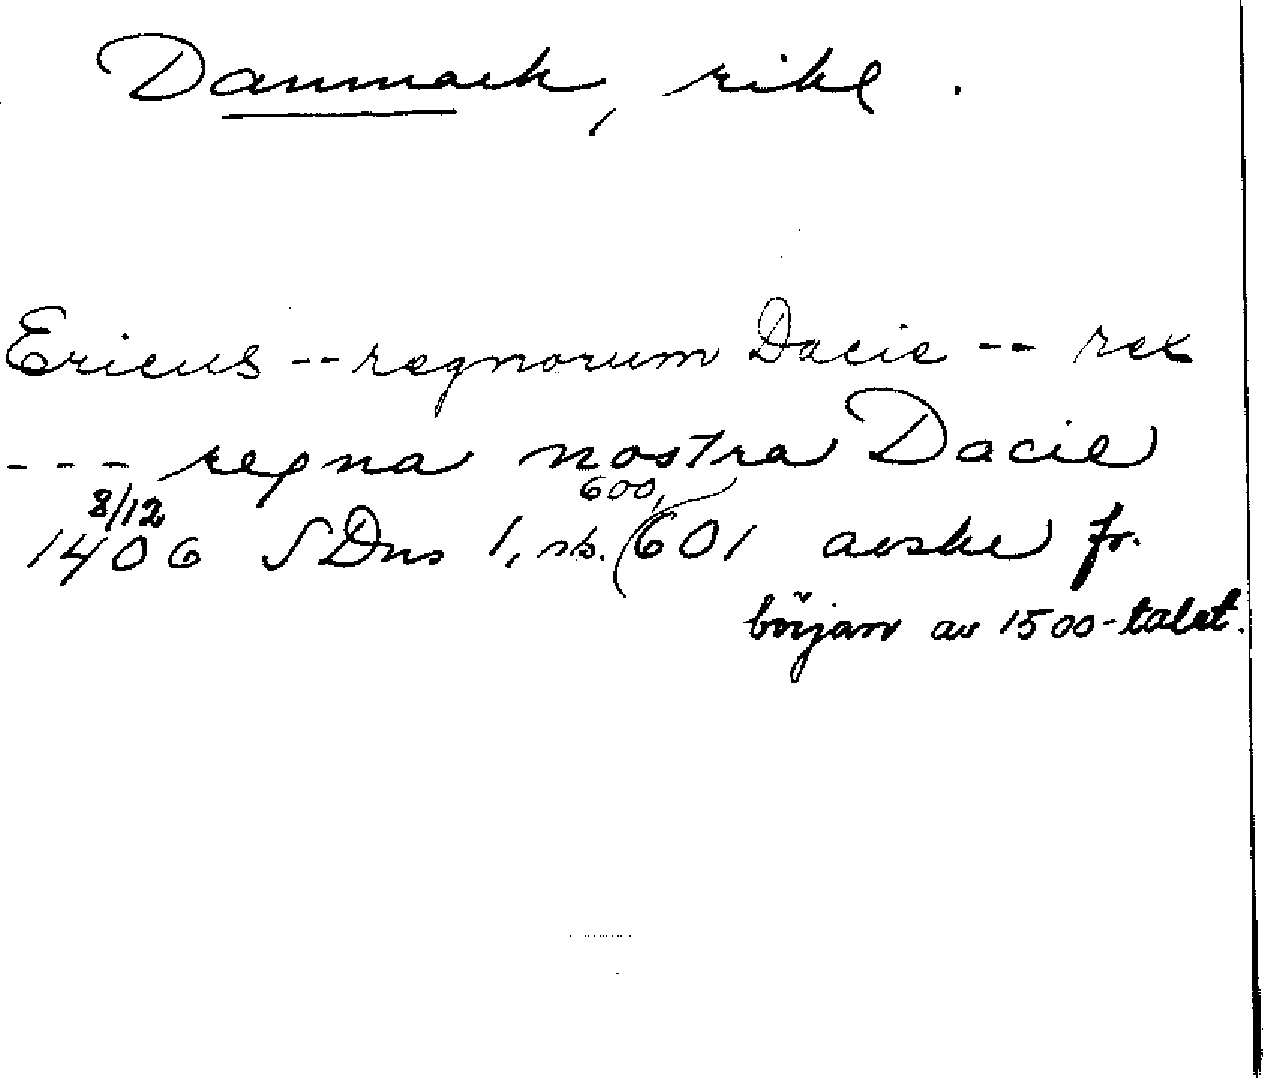 Danmark, rike.
Ericus -- regnorum Dacie -- rex
--- regna nostra Dacie
8/12
600,
1406 SDns 1, sb. 601 avskr fr.
början av 1500-talet.